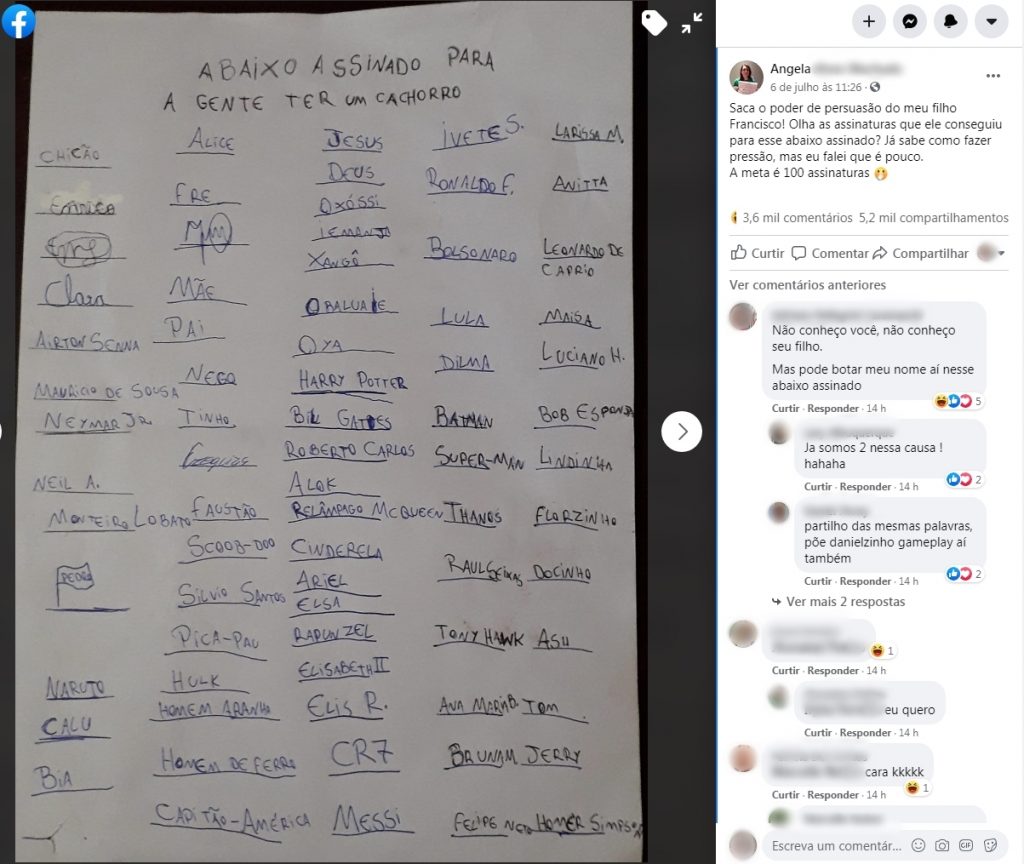 ABAIXO ASSINADO PARA
A GENTE TER UM CACHORRO
CHICÃO
Clara
AIRTON SENNA
MAURICIO DE SOUSA
NEYMAR JR
NEIL A.
MONTEIRO LOBATO
PEDRO
NARUTO
CALU
BIA
ALICE
FRE
MÃE
PAI
NEGO
TINHO
FAUSTÃO
SCOOB-DOO
SILVIO SANTOS
PICA-PAU
HULK
HOMEM ARANHA
HOMEM DE FERRO
CAPITÃO-AMÉRICA
JESUS
DEUS
OXÓSSI
IEMANJA
XANGÔ
OBALUAIE
OYA
HARRY POTTER
BIL GATES
ROBERTO CARLOS
ALOK
RELÂMPAGO MCQUEEN
CINDERELA
ARIEL
ELSA
RAPUNZEL
ELISABETH II
ELIS R.
CR7
MESSI
IVETE S.
RONALDO F.
BOLSONARO
LULA
DILMA
BATMAN
SUPER-MAN
THANOS
RAUL SEIXAS
TONY HAWK
ANA MARIA B.
BRUNAM
FELIPE NETO
LARISSA M.
ANITTA
LEONARDO DE
CAPRIO
MAISA
LUCIANO H.
BOB ESPONJA
LINDINHA
FLORZINHA
DOCINHO
ASH
TOM
JERRY
HOMER SIMPSON
Angela
6 de julho às 11:26 ·
Saca o poder de persuasão do meu filho
Francisco! Olha as assinaturas que ele conseguiu
para esse abaixo assinado? Já sabe como fazer
pressão, mas eu falei que é pouco.
A meta é 100 assinaturas 🤭
3,6 mil comentários 5,2 mil compartilhamentos
Curtir Comentar Compartilhar
Ver comentários anteriores
Não conheço você, não conheço
seu filho.
Mas pode botar meu nome aí nesse
abaixo assinado
5
Curtir · Responder · 14 h
Ja somos 2 nessa causa !
hahaha
2
Curtir · Responder · 14 h
partilho das mesmas palavras,
põe danielzinho gameplay aí
também
2
Curtir · Responder · 14 h
Ver mais 2 respostas
1
Curtir · Responder · 14 h
eu quero
Curtir · Responder · 14 h
cara kkkkk
1
Curtir · Responder · 14 h
Escreva um comentár...
GIF